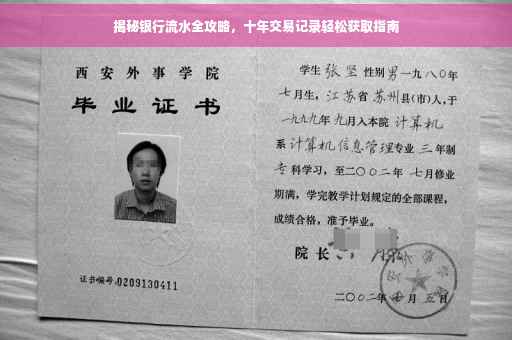 揭秘银行流水全攻略，十年交易记录轻松获取指南
西安外事学院
毕业证书
证书编号:0209130411
学生张坚性别男一九八〇年
七月生，江苏省苏州县(市)人,于
一九九九年九月入本院计算机
系计算机信息管理专业三年制
专科学习，至二〇〇二年七月修业
期满，学完教学计划规定的全部课程，
成绩合格，准予毕业。
院长
二〇〇二年 月五日